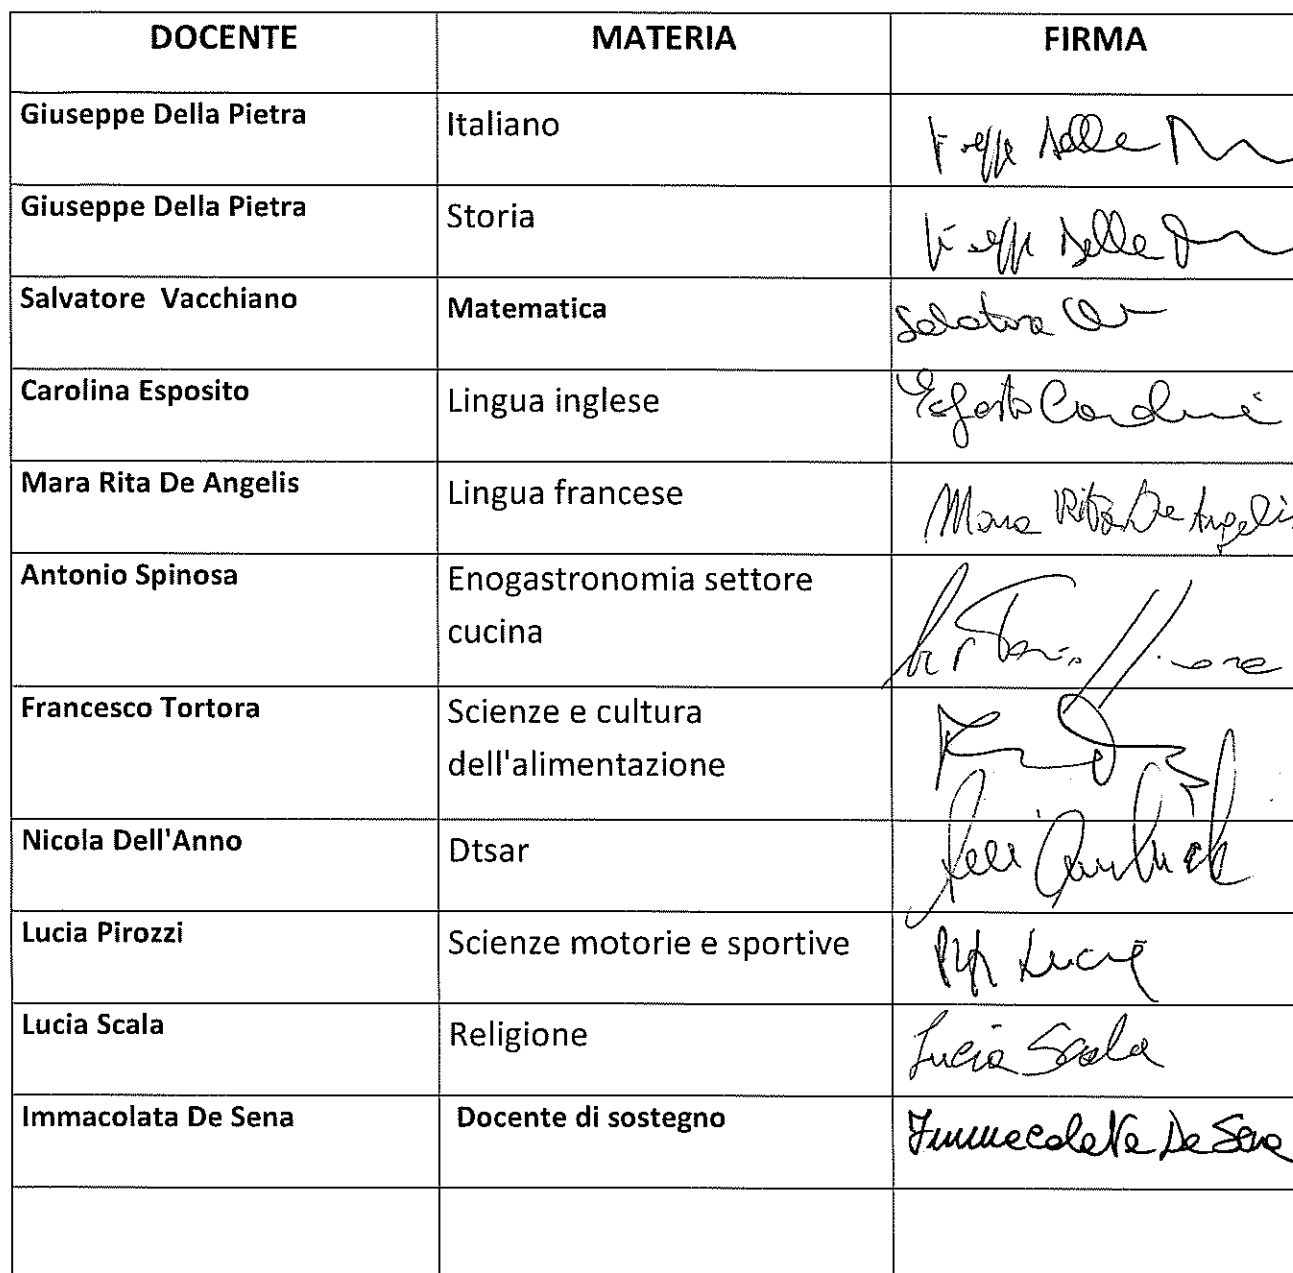 DOCENTE MATERIA FIRMA
Giuseppe Della Pietra Italiano Della
Giuseppe Della Pietra Storia Della
Salvatore Vacchiano Matematica
Carolina Esposito Lingua inglese
Mara Rita De Angelis Lingua francese Mara Rita De Angelis
Antonio Spinosa Enogastronomia settore
cucina
Francesco Tortora Scienze e cultura
dell'alimentazione
Nicola Dell'Anno Dtsar
Lucia Pirozzi Scienze motorie e sportive Lucia
Lucia Scala Religione Lucia Scala
Immacolata De Sena Docente di sostegno Immacolata De Sena